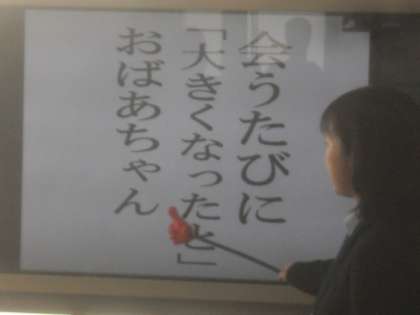 会うたびに
「大きくなったと」
おばあちゃん